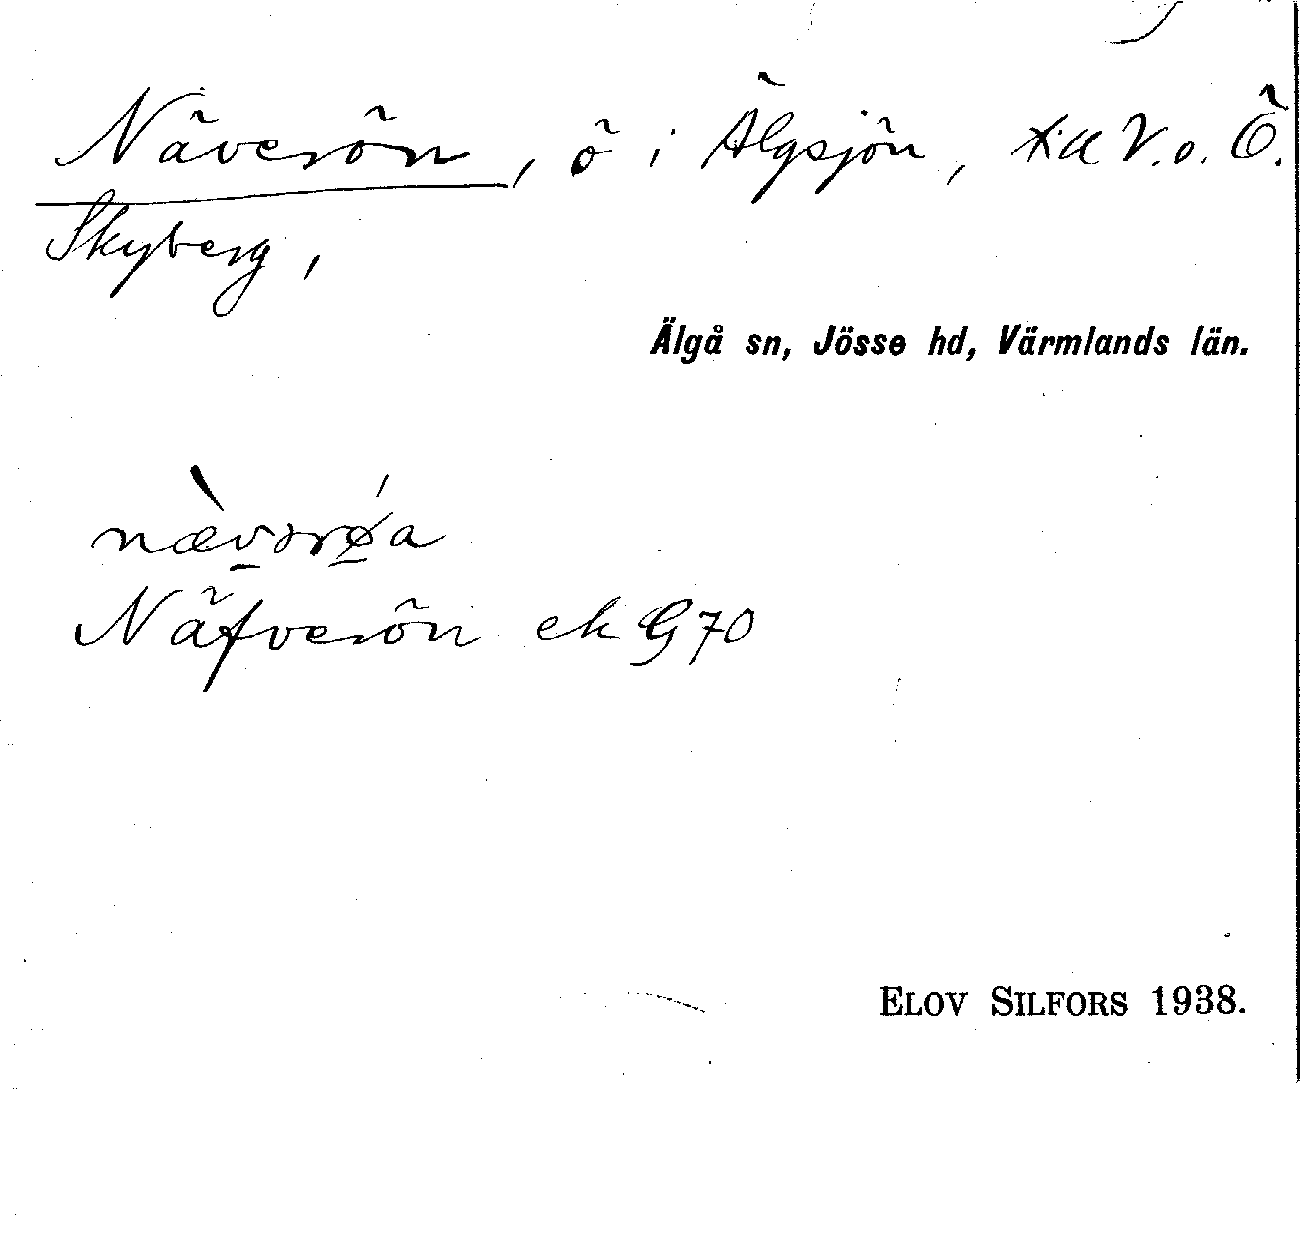 Näverön, ö i Älgsjön, till V. o. Ö.
Skyberg,
Älgå sn, Jösse hd, Värmlands län.
næ̀vərǿa
Näfverön ek G70
ELOV SILFORS 1938.